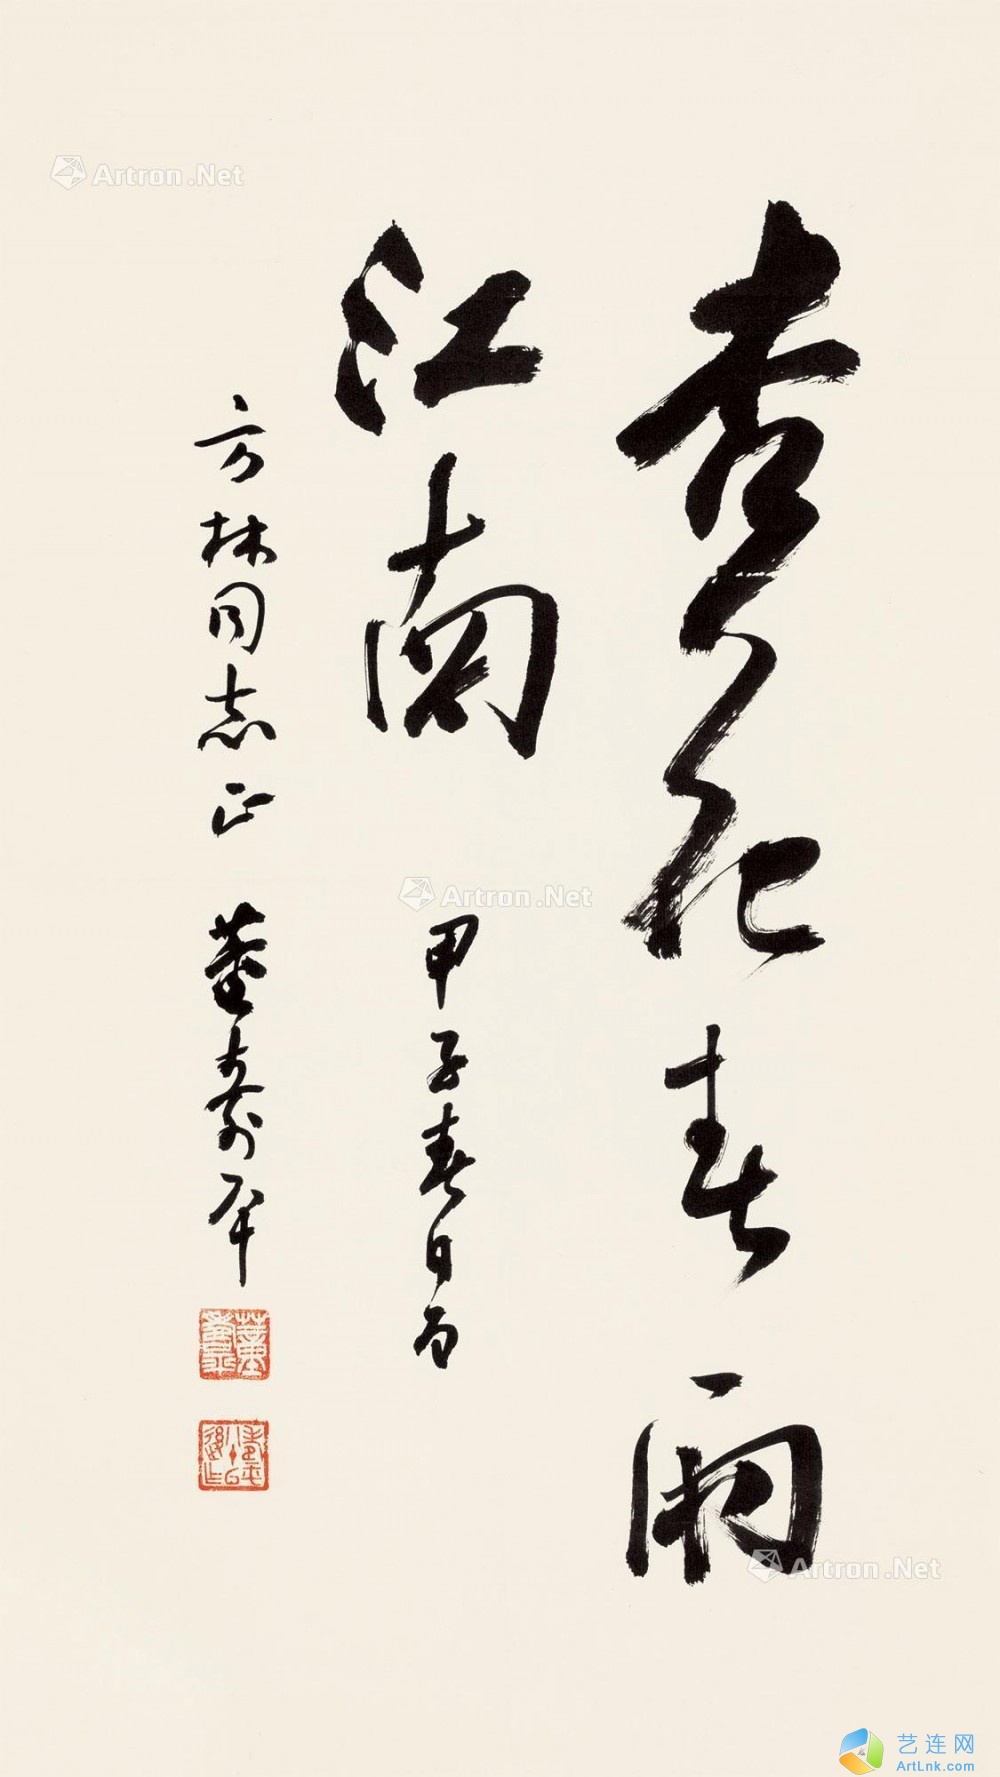 杏花春雨
江南
甲子春日
方林同志正 董寿平
Artron.Net
Artron.Net
Artron.Net
艺连网
ArtLnk.com